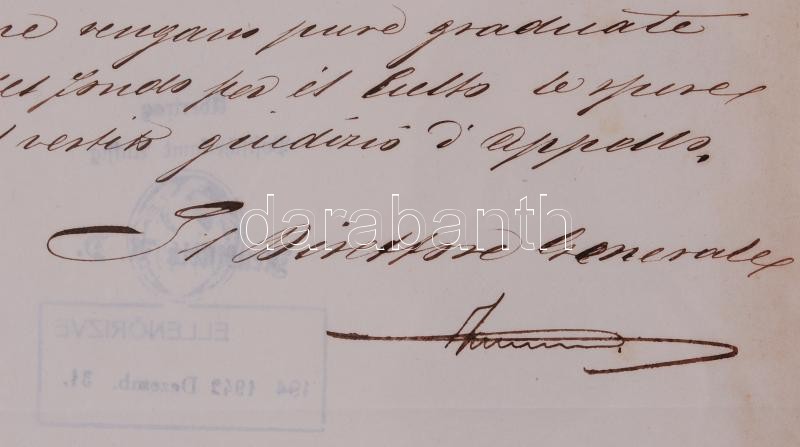 vengano pure graduate
fondo per il Culto le spese
vertito giudizio d'appello.
darabanth
Il Direttore Generale
ELLENŐRIZVE
194 1942 Dezemb. 31.